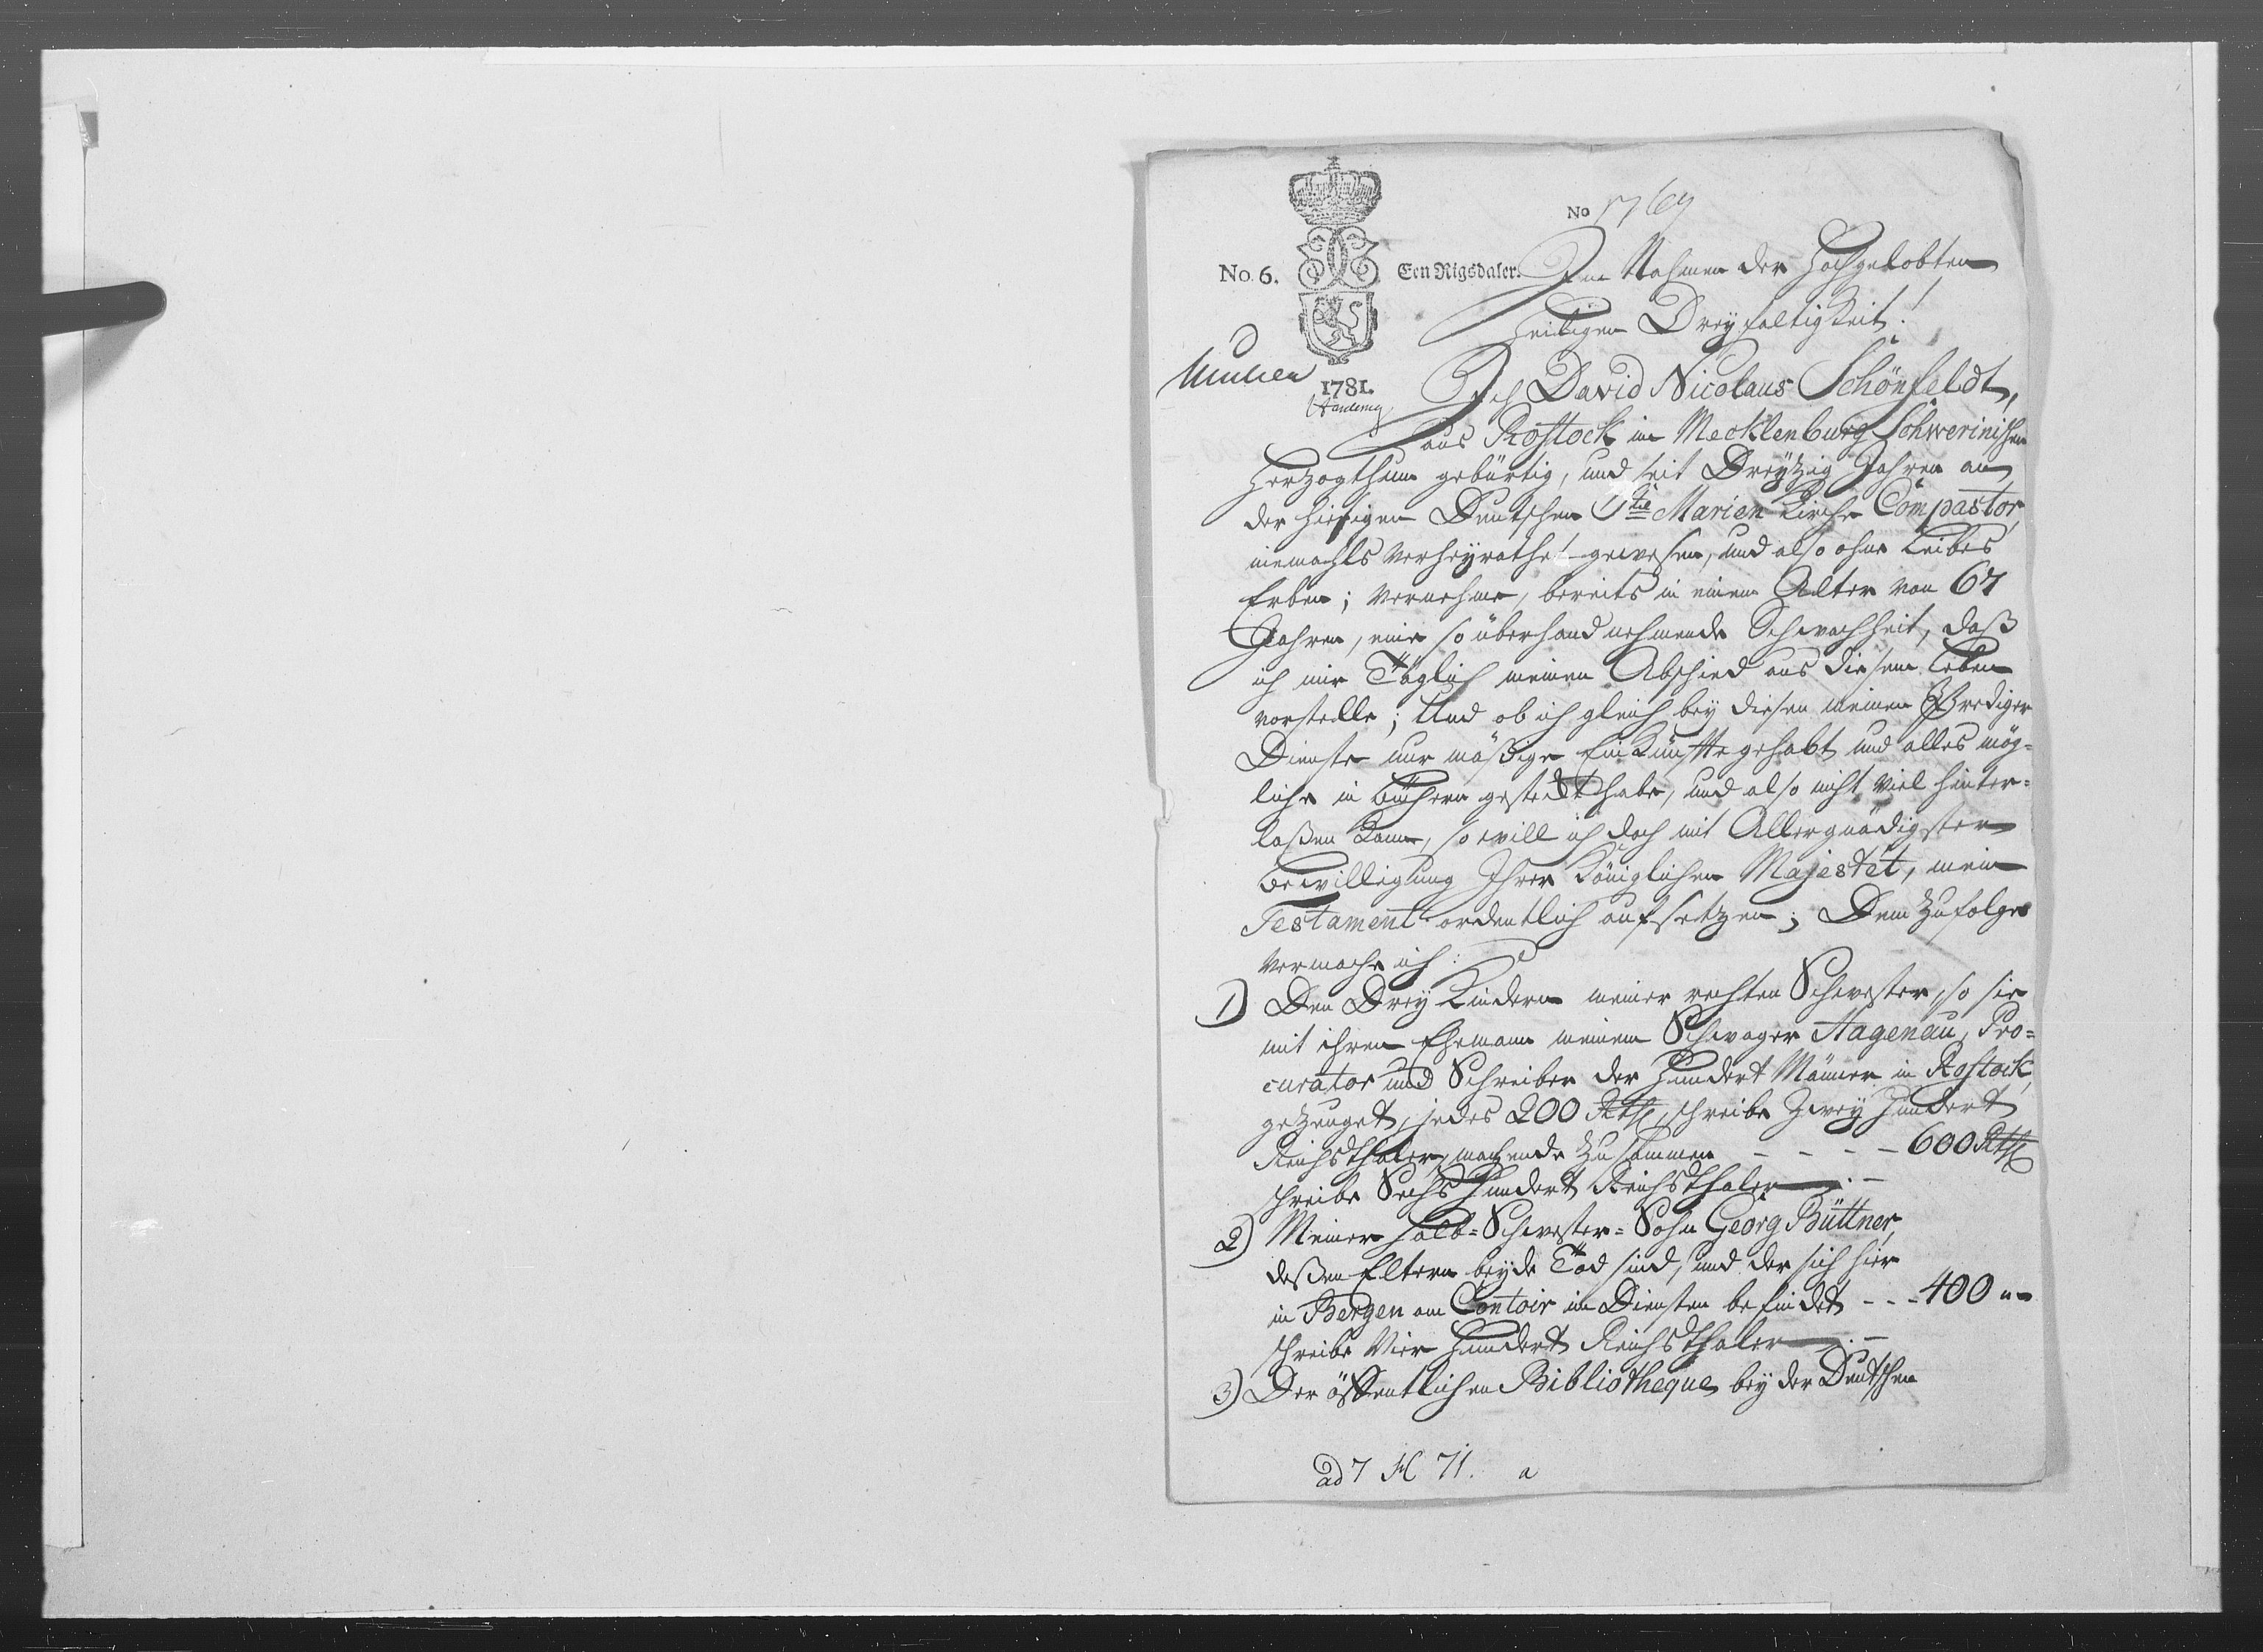 No 1769
No. 6. Een Rigsdaler.
1781.
Im Nahmen der Hochgelobten
Heiligen Dreyfaltigkeit!
Ich David Nicolaus Schönfeldt,
aus Rostock im Mecklenburg Schwerinischen
Herzogthum gebürtig, und seit Dreytzig Jahren an
der hiesigen Deutschen Stæ Marien Kirche Compastor,
niemahls verheyrathet gewesen, und also ohne Leibes
Erben; vernehme, bereits in einem Alter von 67
Jahren, eine so überhand nehmende Schwachheit, daß
ich mir Täglich meinen Abschied aus diesem Leben
vorstelle; Und ob ich gleich bey diesen meinen Prediger
Dienste nur mäßige Einkünffte gehabt und alles mög=
liche in Bücher gesteckt habe, und also nicht viel hinter=
laßen kann, so will ich doch mit Allergnädigster
Bewilligung Ihrer Königlichen Majestét, mein
Testament ordentlich aufsetzen; Dem zufolge
vermache ich:
1) Den Drey Kindern meiner rechten Schwester, so sie
mit ihren Ehemann meinem Schwager Hagenau, Pro=
curator und Schreiber der Hundert Männer in Rostock,
gezeuget, jedes 200 Rthl, schreibe Zwey Hundert
Reichsthaler, machende zusammen - - - - 600 Rthl
schreibe Sechs Hundert Reichsthaler.
2) Meiner Halb=Schwester=Sohn Georg Büttner,
deßen Eltern beyde Tod sind, und der sich hier
in Bergen am Contoir in Diensten befindet - - - 400 "-
schreibe Vier Hundert Reichsthaler.
3) Der öffentlichen Bibliotheque bey der Deutschen
ad 7 H 71. a